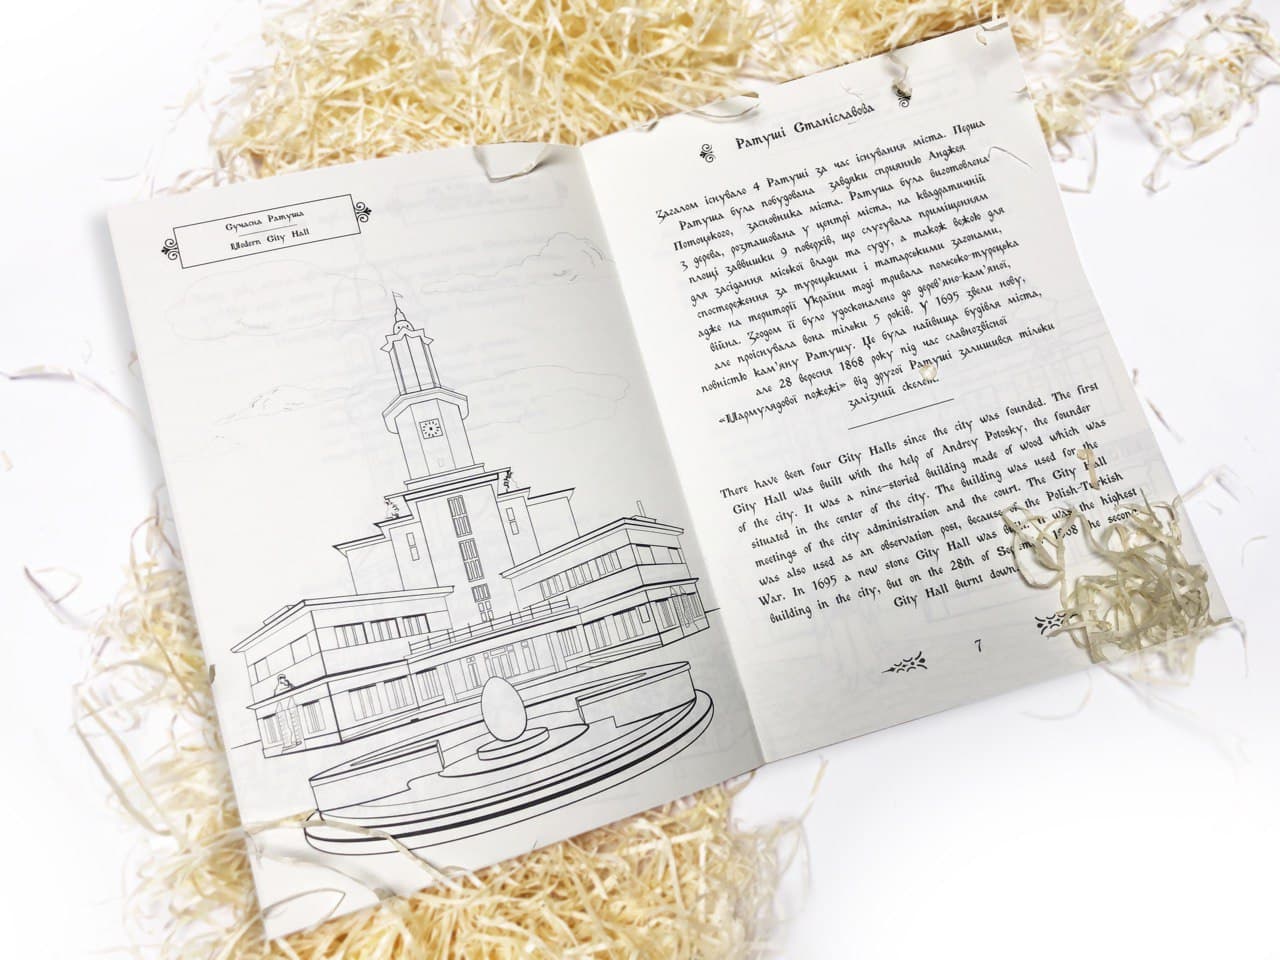 Сучасна Ратуша
Modern City Hall
Ратуші Станіславова
Загалом існувало 4 Ратуші за час існування міста. Перша
Ратуша була побудована завдяки сприянню Анджея
Потоцького, засновника міста. Ратуша була виготовлена
з дерева, розташована у центрі міста, на квадратичній
площі заввишки 9 поверхів, що слугувала приміщенням
для засідання міської влади та суду, а також вежою для
спостереження за турецькими і татарськими загонами,
адже на території України тоді тривала польсько-турецька
війна. Згодом її було удосконалено до дерев'яно-кам'яної,
але проіснувала вона тільки 5 років. У 1695 звели нову,
повністю кам'яну Ратушу. Це була найвища будівля міста,
але 28 вересня 1868 року під час славнозвісної
«Мармулядової пожежі» від другої Ратуші залишився тільки
залізний скелет.
There have been four City Halls since the city was founded. The first
City Hall was built with the help of Andrey Potosky, the founder
of the city. It was a nine-storied building made of wood which was
situated in the center of the city. The building was used for the
meetings of the city administration and the court. The City Hall
was also used as an observation post, because of the Polish-Turkish
War. In 1695 a new stone City Hall was It was the highest
building in the city, but on the 28th of 1868 the second
City Hall burnt down.
7